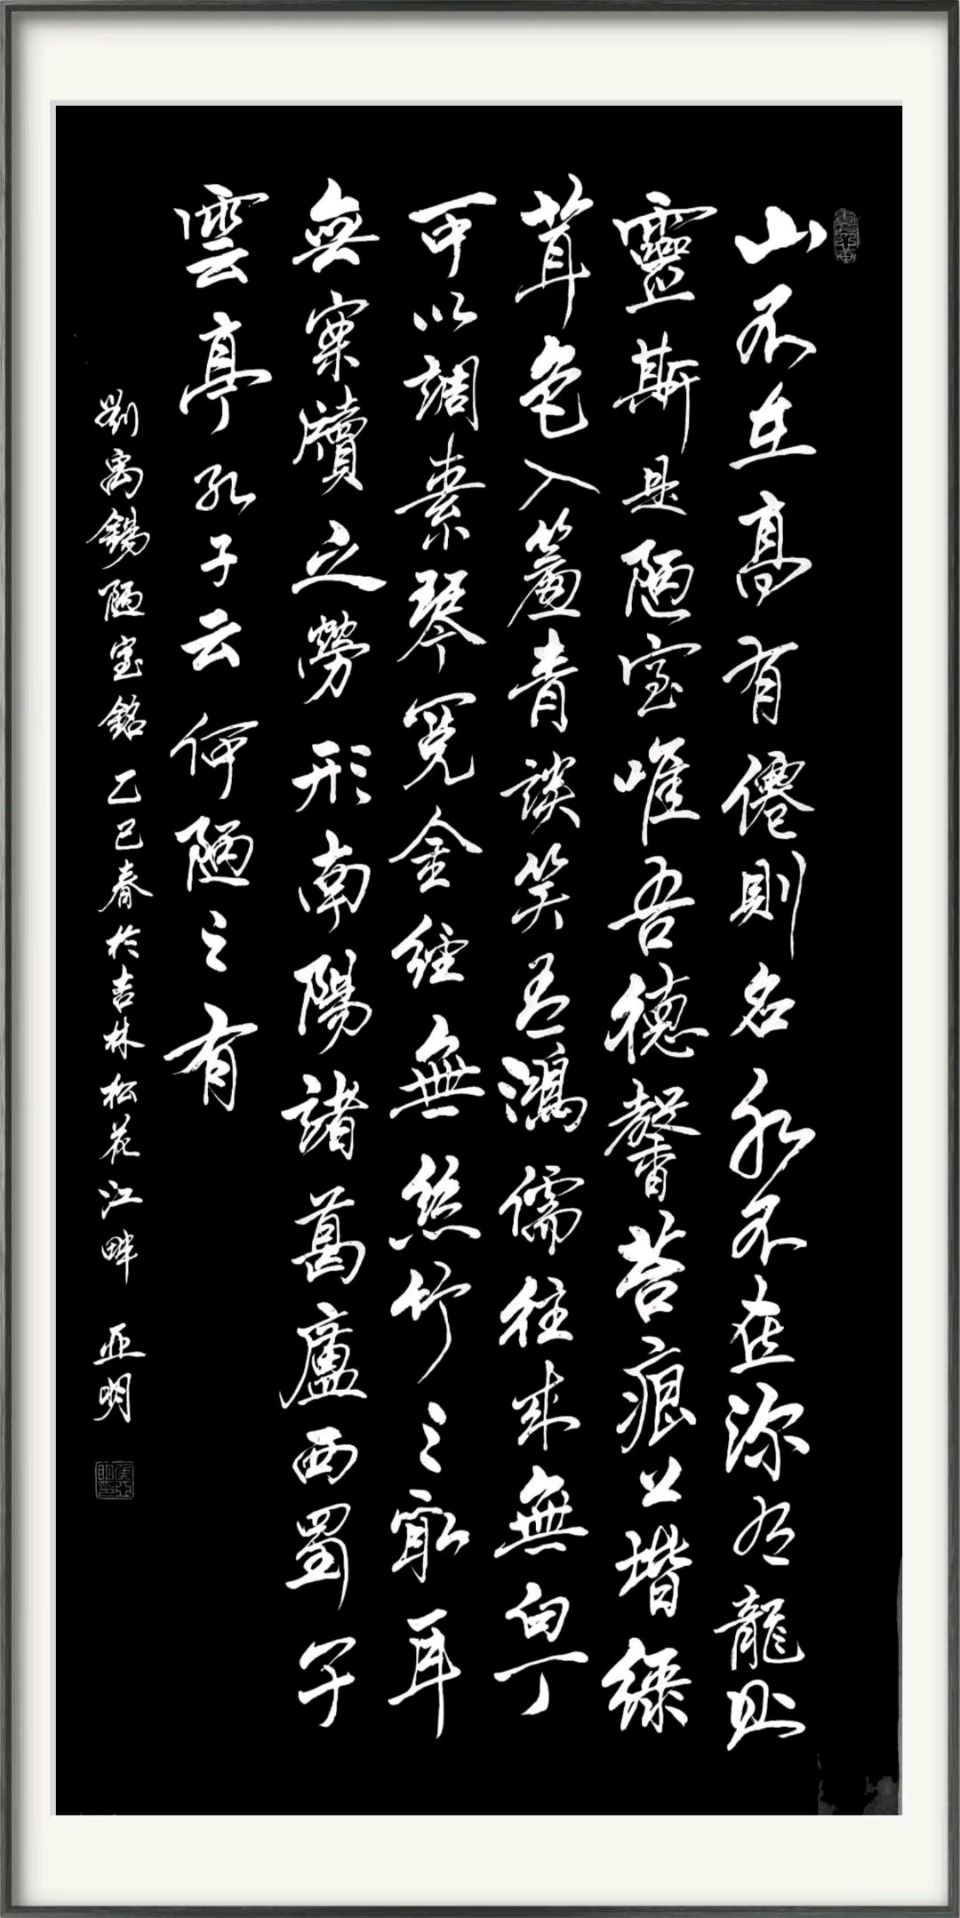 山不在高有僊則名水不在深有龍則
靈斯是陋室唯吾德馨苔痕上堦綠
草色入簾青談笑有鴻儒往來無白丁
可以調素琴閱金經無絲竹之亂耳
無案牘之勞形南陽諸葛廬西蜀子
雲亭孔子云何陋之有
劉禹錫陋室銘 乙巳春於吉林松花江畔 亞明